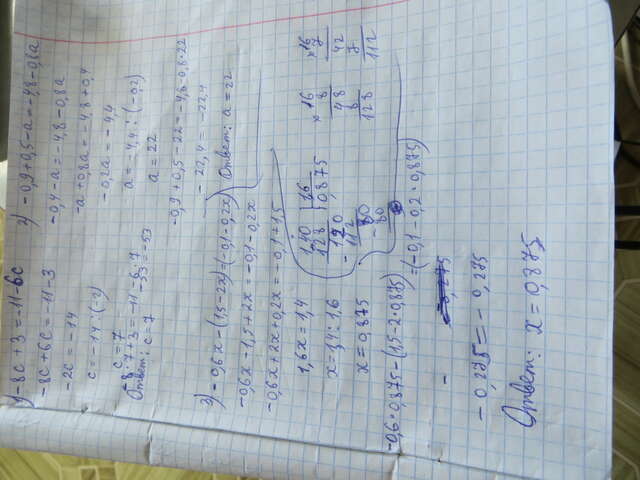 1) -8c + 3 = -11 - 6c
-8c + 6c = -11 - 3
-2c = -14
c = -14 : (-2)
c = 7
-8·7+3 = -11-6·7
-53 = -53
Ответ: c = 7
2) -0,9 + 0,5 - a = -4,8 - 0,8a
-0,4 - a = -4,8 - 0,8a
-a + 0,8a = -4,8 + 0,4
-0,2a = -4,4
a = -4,4 : (-0,2)
a = 22
-0,9 + 0,5 - 22 = -4,8 - 0,8·22
-22,4 = -22,4
Ответ: a = 22
3) -0,6x - (1,5 - 2x) = (-0,1 - 0,2x)
-0,6x - 1,5 + 2x = -0,1 - 0,2x
-0,6x + 2x + 0,2x = -0,1 + 1,5
1,6x = 1,4
x = 1,4 : 1,6
x = 0,875
1,40 | 1,6
128 0,875
- 120
112
- 80
- 80
×16
8
48
8
128
×16
7
42
7
112
-0,6·0,875 - (1,5 - 2·0,875) = (-0,1 - 0,2·0,875)
-0,275 = -0,275
Ответ: x = 0,875